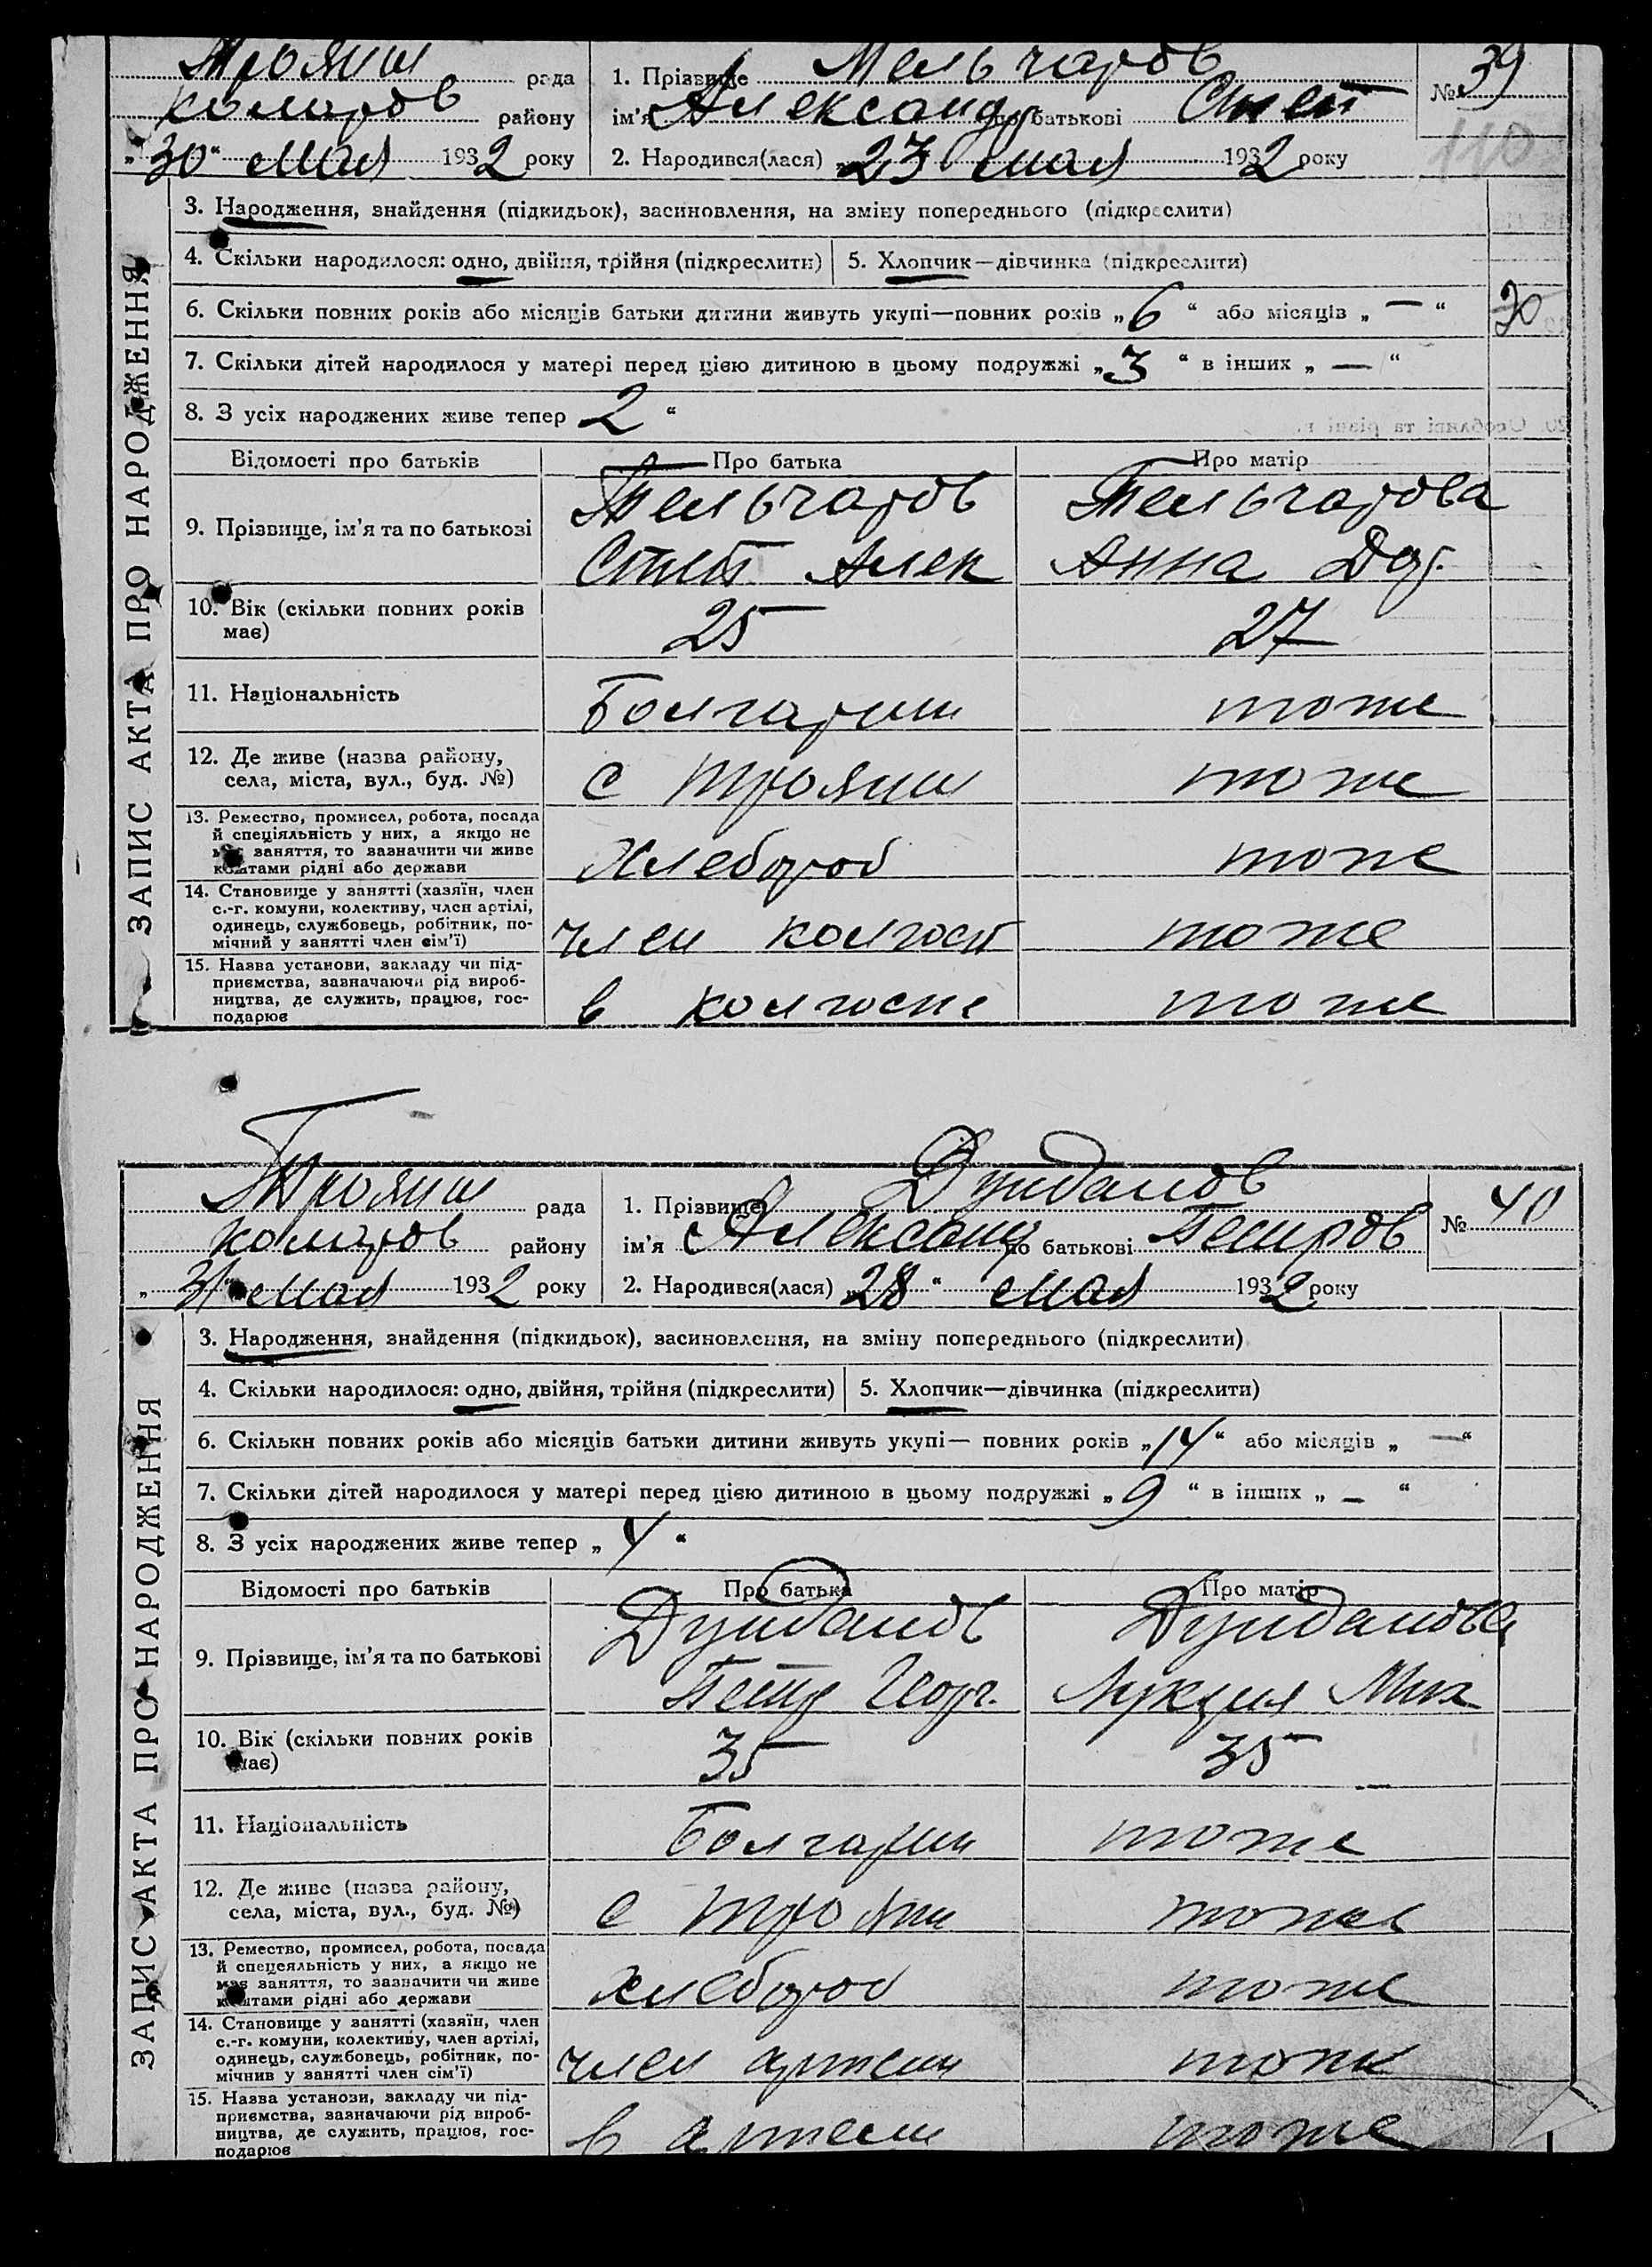 Троянш рада
Коларов району
„30“ мая 1932 року
1. Прізвище Тельчаров
ім'я Александр по батькові Степ
2. Народився(лася) „23 мая 1932 року
№ 39
110
ЗАПИС АКТА ПРО НАРОДЖЕННЯ
3. Народження, знайдення (підкидьок), засиновлення, на зміну попереднього (підкреслити)
4. Скільки народилося: одно, двійня, трійня (підкреслити) 5. Хлопчик—дівчинка (підкреслити)
6. Скільки повних років або місяців батьки дитини живуть укупі—повних років „6“ або місяців „—“
7. Скільки дітей народилося у матері перед цією дитиною в цьому подружжі „3“ в інших „—“
8. З усіх народжених живе тепер 2“
Відомості про батьків Про батька Про матір
9. Прізвище, ім'я та по батькові
Тельчаров Тельчарова
Степ Алек Анна Дд.
10. Вік (скільки повних років
має)
25 27
11. Національність Болгарин тоже
12. Де живе (назва району,
села, міста, вул., буд. №)
с Трояни тоже
13. Ремество, промисел, робота, посада
й спеціяльність у них, а якщо не
має заняття, то зазначити чи живе
коштами рідні або держави
Хлебороб тоже
14. Становище у занятті (хазяїн, член
с.-г. комуни, колективу, член артілі,
одинець, службовець, робітник, по-
мічний у занятті член сім'ї)
член колгосп тоже
15. Назва установи, закладу чи під-
приємства, зазначаючи рід вироб-
ництва, де служить, працює, гос-
подарює
в колгоспе тоже
Троянш рада
Коларов району
„31“ мая 1932 року
1. Прізвище Дунданов
ім'я Александр по батькові Петров
2. Народився(лася) „28“ мая 1932 року
№ 40
ЗАПИС АКТА ПРО НАРОДЖЕННЯ
3. Народження, знайдення (підкидьок), засиновлення, на зміну попереднього (підкреслити)
4. Скільки народилося: одно, двійня, трійня (підкреслити) 5. Хлопчик—дівчинка (підкреслити)
6. Скільки повних років або місяців батьки дитини живуть укупі— повних років „14“ або місяців „—“
7. Скільки дітей народилося у матері перед цією дитиною в цьому подружжі „9“ в інших „—“
8. З усіх народжених живе тепер „4“
Відомості про батьків Про батька Про матір
9. Прізвище, ім'я та по батькові
Дунданов Дунданова
Петр Георг. Лукция Мих
10. Вік (скільки повних років
має)
35 35
11. Національність Болгарин тоже
12. Де живе (назва району,
села, міста, вул., буд. №)
с Трояни тоже
13. Ремество, промисел, робота, посада
й спецеяльність у них, а якщо не
має заняття, то зазначити чи живе
коштами рідні або держави
хлебороб тоже
14. Становище у занятті (хазяїн, член
с.-г. комуни, колективу, член артілі,
одинець, службовець, робітник, по-
мічнив у занятті член сім'ї)
член артели тоже
15. Назва установи, закладу чи під-
приємства, зазначаючи рід вироб-
ництва, де служить, працює, гос-
подарює
в артели тоже